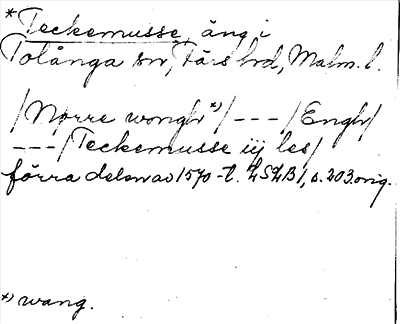 *Teckemusse, äng i
Tolånga sn, Färs hd, Malm. l.
/Nørre wongh*)/---/Engh/
---/Teckemusse iij les/
förra delen av 1570-t. LSLB 1, s. 203.orig.
*) wang.